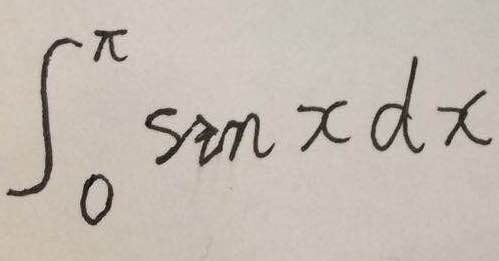 ∫₀^π sin x dx